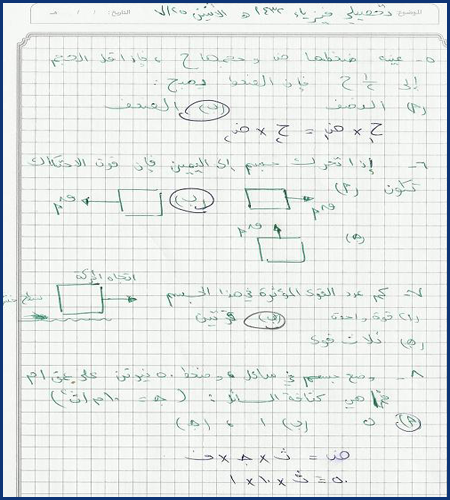 تحصيلي فيزياء ١٤٣٢ هـ الاثنين ٧/٢٥
٥- عينه ضغطها ض وحجمها ح ، فإذا قل الحجم
إلى ½ ح فإن الضغط يصبح :
(أ) النصف (ب) الضعف
ح₁ × ض₁ = ح₂ × ض₂
٦- إذا تحرك جسم إلى اليمين فإن قوة الاحتكاك
تكون (أ) (ب)
(ج)
اتجاه الحركة
٧- كم عدد القوى المؤثرة في هذا الجسم
(أ) قوة واحدة (ب) قوتين
(ج) ثلاث قوى
٨- وضع جسم في سائل وضغط ٥٠ نيوتن على عمق ١م
هي كثافة السائل : ( جـ = ١٠ م/ث² )
(أ) ٥ (ب) ١ (ج)
ض = ث × جـ × ف
٥٠ = ث × ١٠ × ١